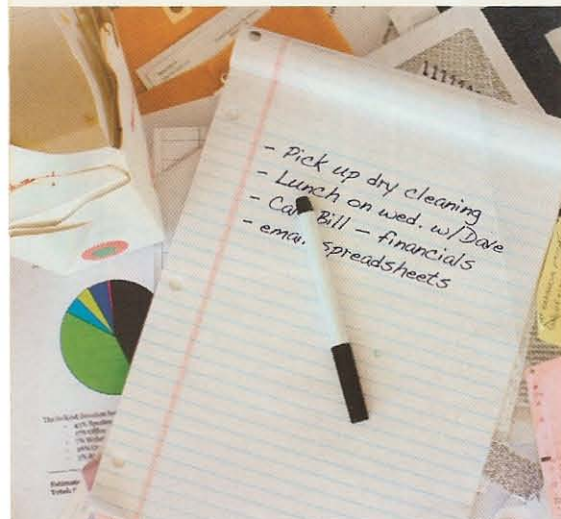 - Pick up dry cleaning
- Lunch on wed. w/Dave
- Call Bill – financials
- email spreadsheets